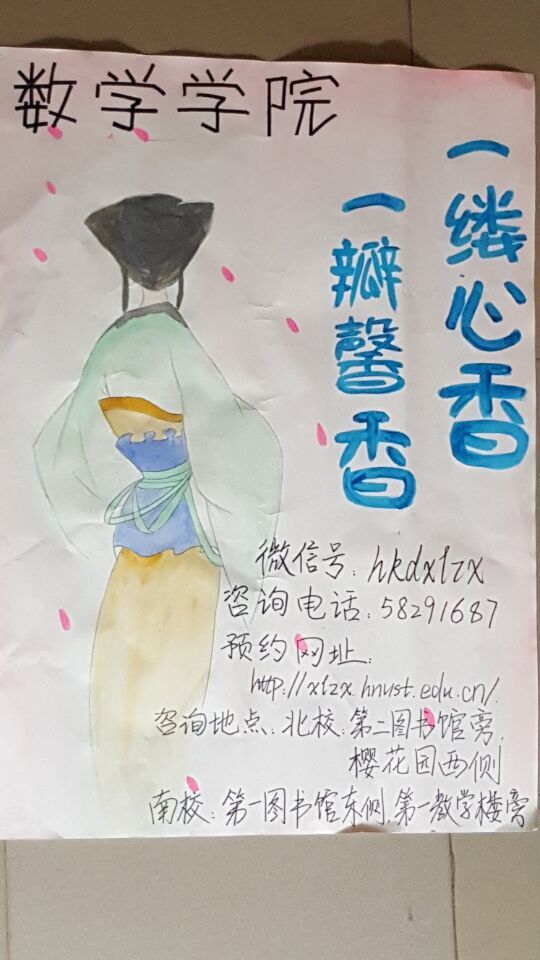 数学学院
一缕心香
一瓣馨香
微信号:hkdxlzx
咨询电话:58291687
预约网址:
http://xlzx.hnust.edu.cn/.
咨询地点:北校:第二图书馆旁,
樱花园西侧
南校:第一图书馆东侧,第一教学楼旁